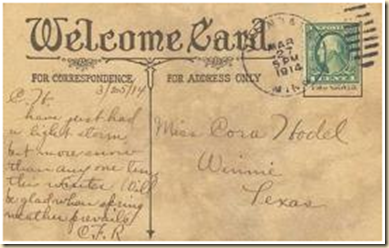 Welcome Card.
MAR
27
5 PM
1914
MIN
FOR CORRESPONDENCE
FOR ADDRESS ONLY
3/25/14
C. H.
have just had
a light storm
but more snow
than any one time
this winter. Will
be glad when spring
weather prevails
C. F. R
Miss Cora Hodel
Winnie
Texas